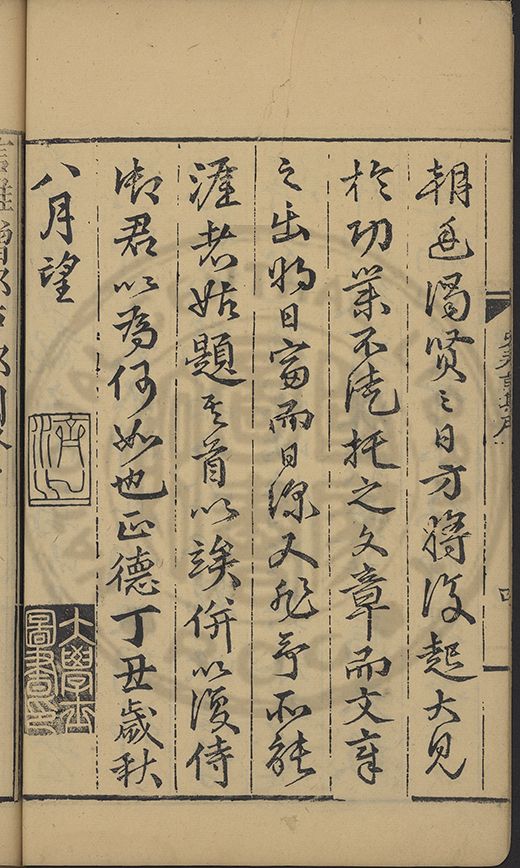 朝廷渴賢之日方將復起大見
於功業不徒托之文章而文章
之出將日富而日深又非予所能
涯者姑題其首以俟併以復侍
御君以為何如也正德丁丑歲秋
八月望
濟之
大學士
圖書印